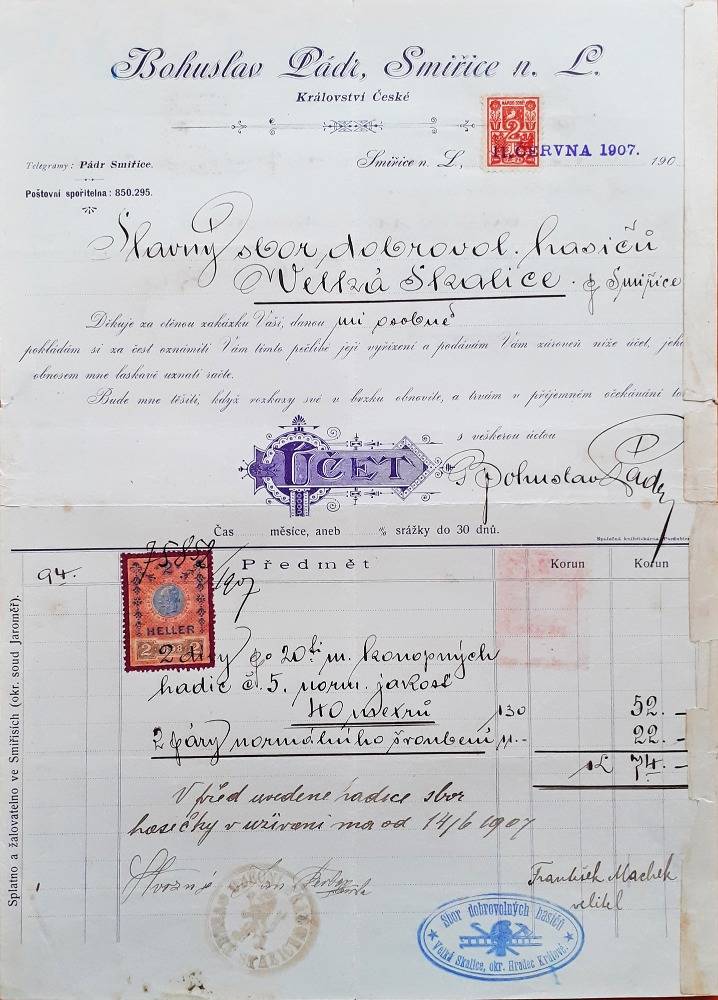 Bohuslav Pádr, Smiřice n. L.
Království České
Telegramy: Pádr Smiřice.
Poštovní spořitelna: 850.295.
NÁROD SOBĚ
2
Smiřice n. L., 11. ČERVNA 1907. 190
Slavný sbor dobrovol. hasičů
Velká Skalice. p Smiřice
Děkuje za ctěnou zakázku Vaši, danou mi osobně
pokládám si za čest oznámiti Vám tímto pečlivé její vyřízení a podávám Vám zároveň níže účet, jehož
obnosem mne laskavě uznati račte.
Bude mne těšiti, když rozkazy své v brzku obnovíte, a trvám v příjemném očekávání to
s veškerou úctou
ÚČET
Bohuslav Pádr
Čas měsíce, aneb % srážky do 30 dnů.
Předmět Korun Korun
94.
/1907
2
HELLER
2 2
Splatno a žalovatelno ve Smiřicích (okr. soud Jaroměř).
2 díly po 20ti m. konopných
hadic č. 5. norm. jakost
40 metrů 130 52.–
2 páry normálního šroubení 11.– 22.–
74.–
V před uvedene hadice sbor
hasičsky v uživani ma od 14/6 1907
František Machek
velitel
Sbor dobrovolných hasičů
Velká Skalice, okr. Hradec Králové.